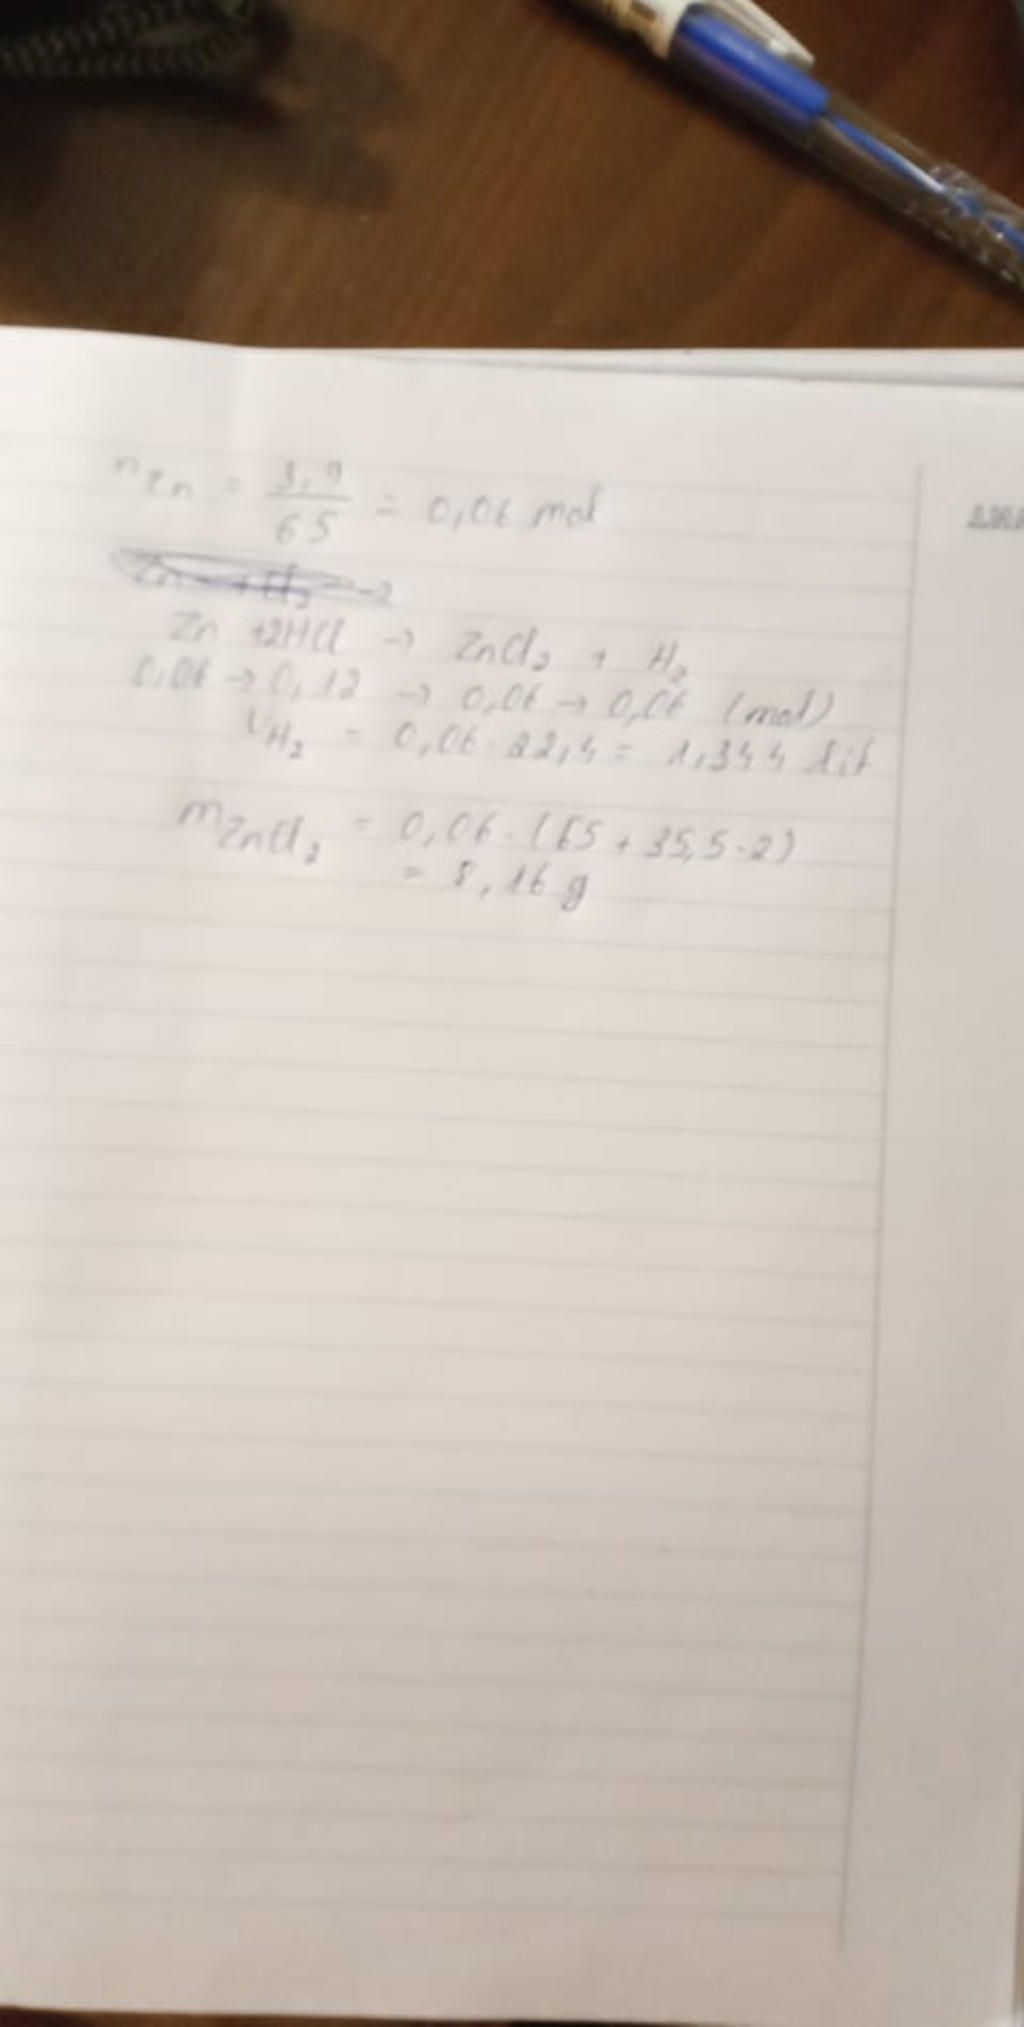 nZn = 3,9/65 = 0,06 mol
Zn + 2HCl → ZnCl₂ + H₂
0,06 → 0,12 → 0,06 → 0,06 (mol)
VH₂ = 0,06 . 22,4 = 1,344 lit
mZnCl₂ = 0,06 . (65 + 35,5 . 2)
= 8,16 g